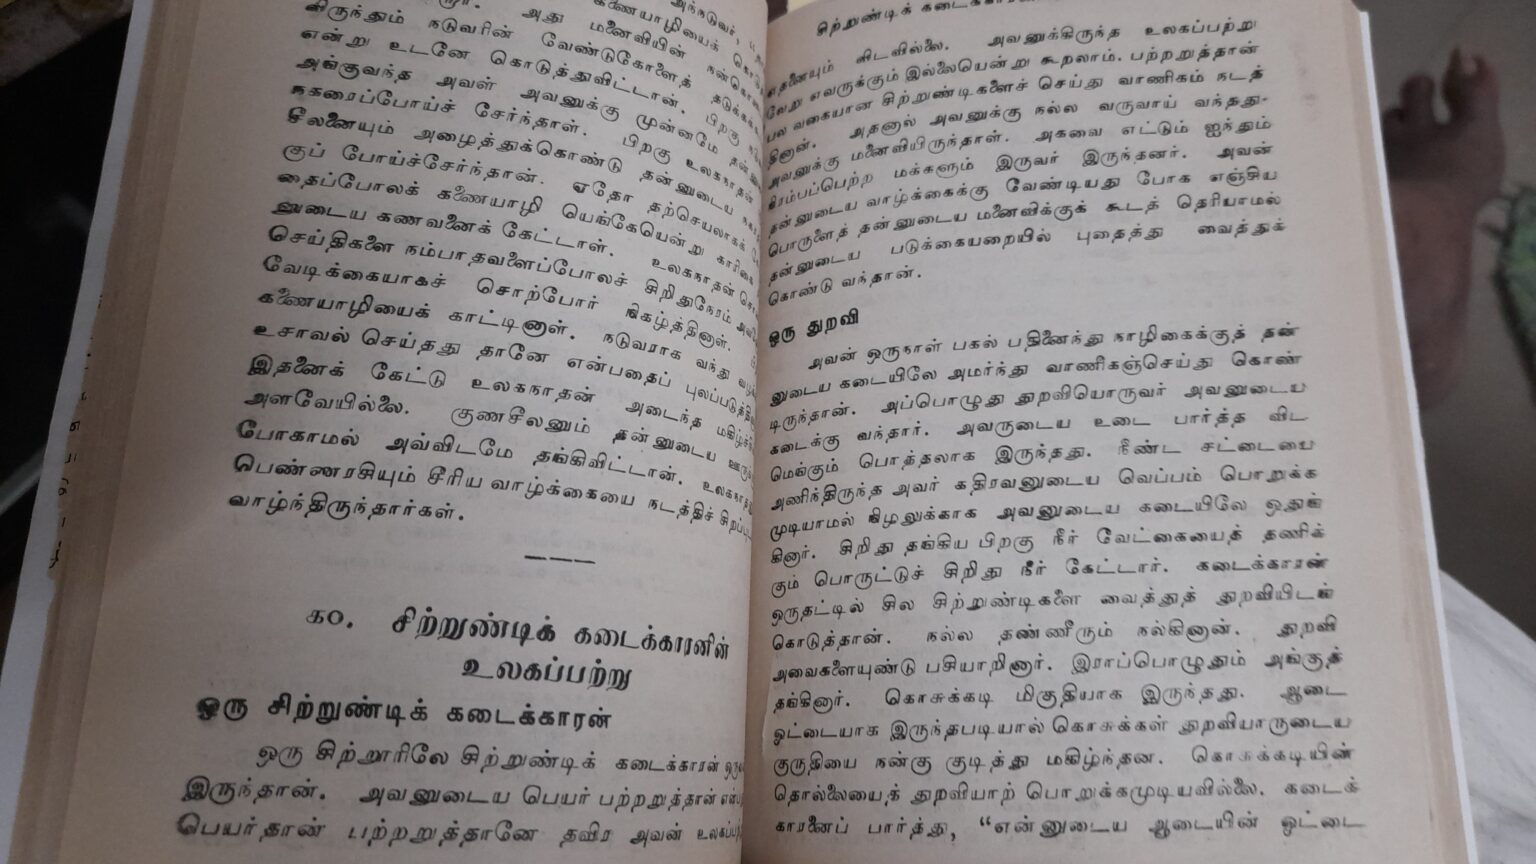 அந்நடுவர்,
கணையாழியைக்
அது மனைவியின் நன்கொடை
விருந்தும் நடுவரின் வேண்டுகோளைத் தடுக்கக்
என்று உடனே கொடுத்துவிட்டான். பிறகு
அங்குவந்த அவள் அவனுக்கு முன்னமே தன்
நகரைப்போய்ச் சேர்ந்தாள். பிறகு உலகநாதன்
சீலனையும் அழைத்துக்கொண்டு தன்னுடைய
குப் போய்ச்சேர்ந்தான். ஏதோ தற்செயலாகக்
தைப்போலக் கணையாழி யெங்கேயென்று காரிகை
னுடைய கணவனைக் கேட்டாள். உலகநாதன்
செய்திகளை நம்பாதவளைப்போலச் சிறிதுநேரம்
வேடிக்கையாகச் சொற்போர் நிகழ்த்தினாள்.
கணையாழியைக் காட்டினாள். நடுவராக வந்து
உசாவல் செய்தது தானே என்பதைப்
இதனைக் கேட்டு உலகநாதன் அடைந்த
அளவேயில்லை. குணசீலனும் தன்னுடைய
போகாமல் அவ்விடமே தங்கிவிட்டான்.
பெண்ணரசியும் சீரிய வாழ்க்கையை நடத்திச்
வாழ்ந்திருந்தார்கள்.
க௦. சிற்றுண்டிக் கடைக்காரனின்
உலகப்பற்று
ஒரு சிற்றுண்டிக் கடைக்காரன்
ஒரு சிற்றூரிலே சிற்றுண்டிக் கடைக்காரன்
இருந்தான். அவனுடைய பெயர் பற்றறுத்தான்
பெயர்தான் பற்றறுத்தானே தவிர அவன்
சிற்றுண்டிக்
எதனையும் விடவில்லை. அவனுக்கிருந்த உலகப்பற்று
வேறு எவருக்கும் இல்லையென்று கூறலாம். பற்றறுத்தான்
பல வகையான சிற்றுண்டிகளைச் செய்து வாணிகம் நடத்
தினான். அதனால் அவனுக்கு நல்ல வருவாய் வந்தது.
அவனுக்கு மனைவியிருந்தாள். அகவை எட்டும் ஐந்தும்
நிரம்பப்பெற்ற மக்களும் இருவர் இருந்தனர். அவன்
தன்னுடைய வாழ்க்கைக்கு வேண்டியது போக எஞ்சிய
பொருளைத் தன்னுடைய மனைவிக்குக் கூடத் தெரியாமல்
தன்னுடைய படுக்கையறையில் புதைத்து வைத்துக்
கொண்டு வந்தான்.
ஒரு துறவி
அவன் ஒருநாள் பகல் பதினைந்து நாழிகைக்குத் தன்
னுடைய கடையிலே அமர்ந்து வாணிகஞ்செய்து கொண்
டிருந்தான். அப்பொழுது துறவியொருவர் அவனுடைய
கடைக்கு வந்தார். அவருடைய உடை பார்த்த விட
மெங்கும் பொத்தலாக இருந்தது. நீண்ட சட்டையை
அணிந்திருந்த அவர் கதிரவனுடைய வெப்பம் பொறுக்க
முடியாமல் நிழலுக்காக அவனுடைய கடையிலே ஒதுங்
கினார். சிறிது தங்கிய பிறகு நீர் வேட்கையைத் தணிக்
கும் பொருட்டுச் சிறிது நீர் கேட்டார். கடைக்காரன்
ஒருதட்டில் சில சிற்றுண்டிகளை வைத்துத் துறவியிடங்
கொடுத்தான். நல்ல தண்ணீரும் நல்கினான். துறவி
அவைகளையுண்டு பசியாறினார். இராப்பொழுதும் அங்குத்
தங்கினார். கொசுக்கடி மிகுதியாக இருந்தது. ஆடை
ஓட்டையாக இருந்தபடியால் கொசுக்கள் துறவியாருடைய
குருதியை நன்கு குடித்து மகிழ்ந்தன. கொசுக்கடியின்
தொல்லையைத் துறவியாற் பொறுக்கமுடியவில்லை. கடைக்
காரனைப் பார்த்து, “என்னுடைய ஆடையின் ஓட்டை